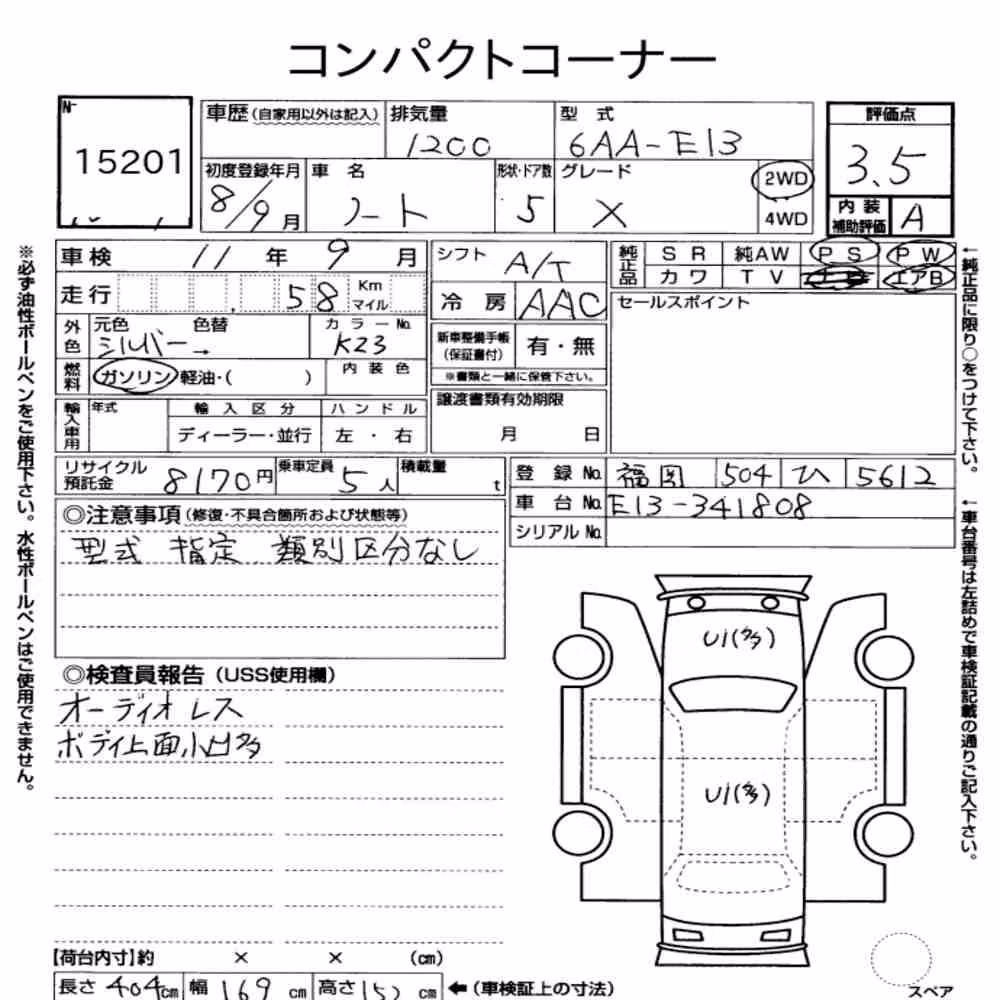 コンパクトコーナー
N-
15201
車歴(自家用以外は記入)
排気量
1200
型式
6AA-E13
評価点
3.5
初度登録年月
8/9月
車名
ノート
形状・ドア数
5
グレード
X
2WD
4WD
内装
補助評価
A
車検 11年9月
シフト
A/T
純正品
SR 純AW PS PW
カワ TV エアB
走行 58 Km
マイル
冷房
AAC
セールスポイント
外色
元色 色替
シルバー→
カラーNo.
K23
新車整備手帳
(保証書付)
有・無
※書類と一緒に保管下さい。
燃料
ガソリン 軽油・( )
内装色
輸入車用
年式
輸入区分
ハンドル
ディーラー・並行
左・右
譲渡書類有効期限
月 日
リサイクル
預託金
8170円
乗車定員
5人
積載量
t
登録No. 福岡 504 ひ 5612
車台No. E13-341808
シリアルNo.
◎注意事項(修復・不具合箇所および状態等)
型式 指定 類別区分なし
◎検査員報告(USS使用欄)
オーディオレス
ボディ上面小凹多
U1(多)
U1(多)
【荷台内寸】約 × × (cm)
長さ 404cm 幅 169cm 高さ 152cm
←(車検証上の寸法)
スペア
※必ず油性ボールペンをご使用下さい。水性ボールペンはご使用できません。
←純正品に限り○をつけて下さい。
←車台番号は左詰めで車検証記載の通りご記入下さい。